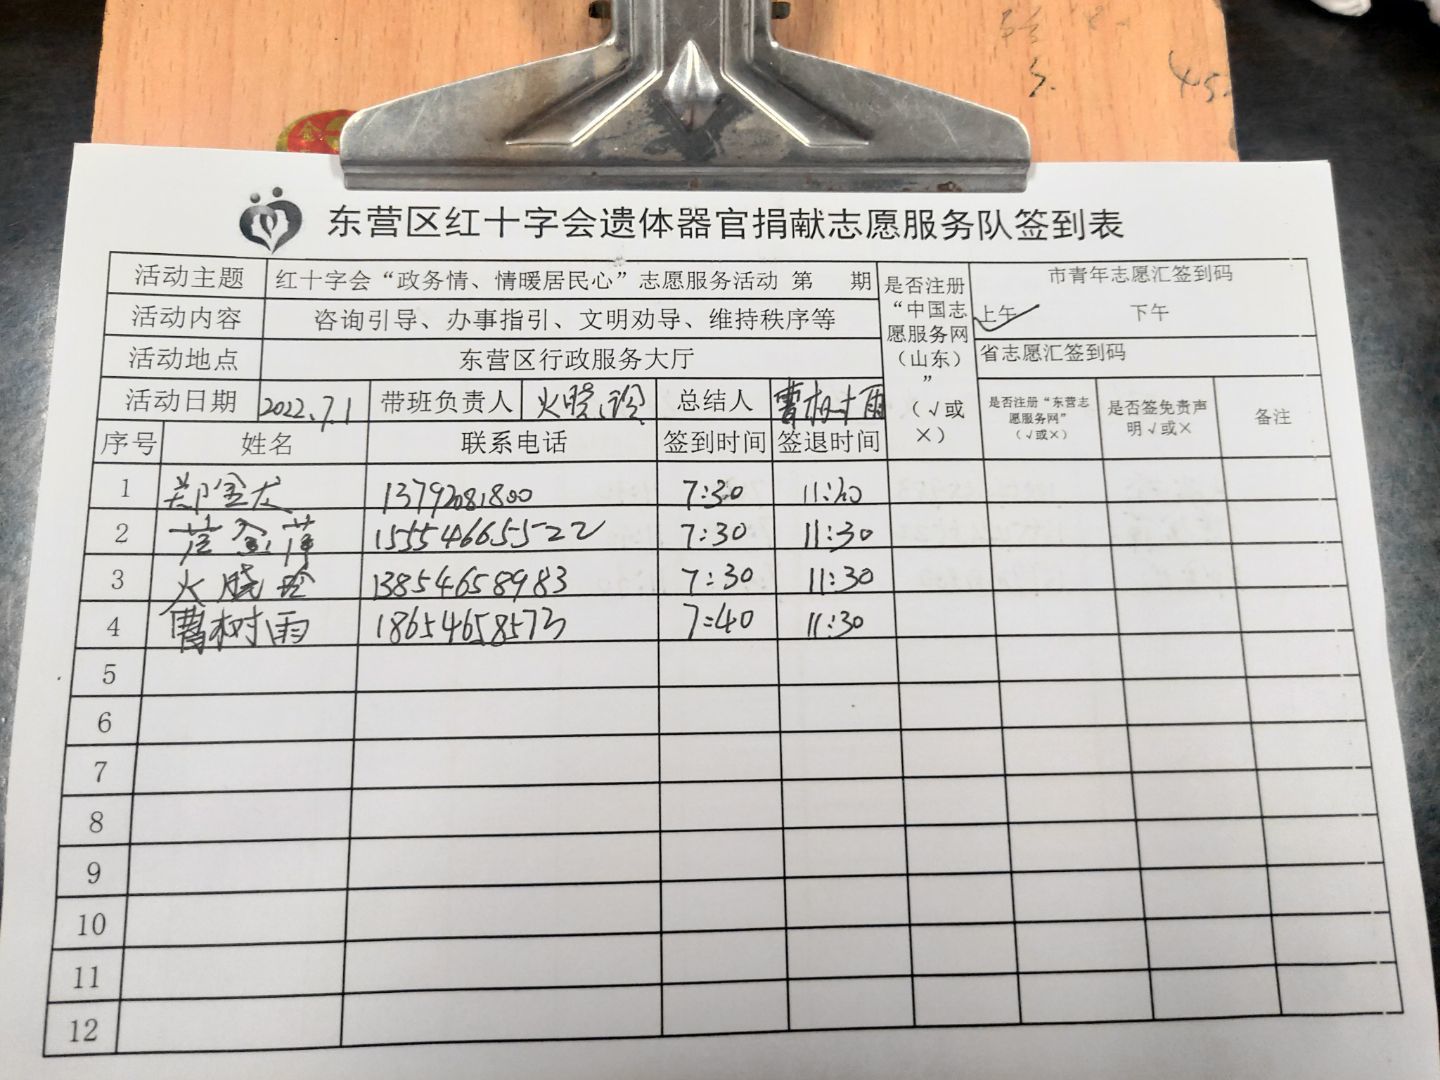 东营区红十字会遗体器官捐献志愿服务队签到表
活动主题 红十字会“政务情、情暖居民心”志愿服务活动 第 期 是否注册“中国志愿服务网（山东）”（√或×） 市青年志愿汇签到码
活动内容 咨询引导、办事指引、文明劝导、维持秩序等 上午 ✓ 下午
活动地点 东营区行政服务大厅 省志愿汇签到码
活动日期 2022.7.1 带班负责人 火晓玲 总结人 曹树雨 是否注册“东营志愿服务网”（√或×） 是否签免责声明√或× 备注
序号 姓名 联系电话 签到时间 签退时间
1 郑金龙 13792081800 7:30 11:30
2 15554665522 7:30 11:30
3 火晓玲 13854658983 7:30 11:30
4 曹树雨 18654658573 7:40 11:30
5
6
7
8
9
10
11
12